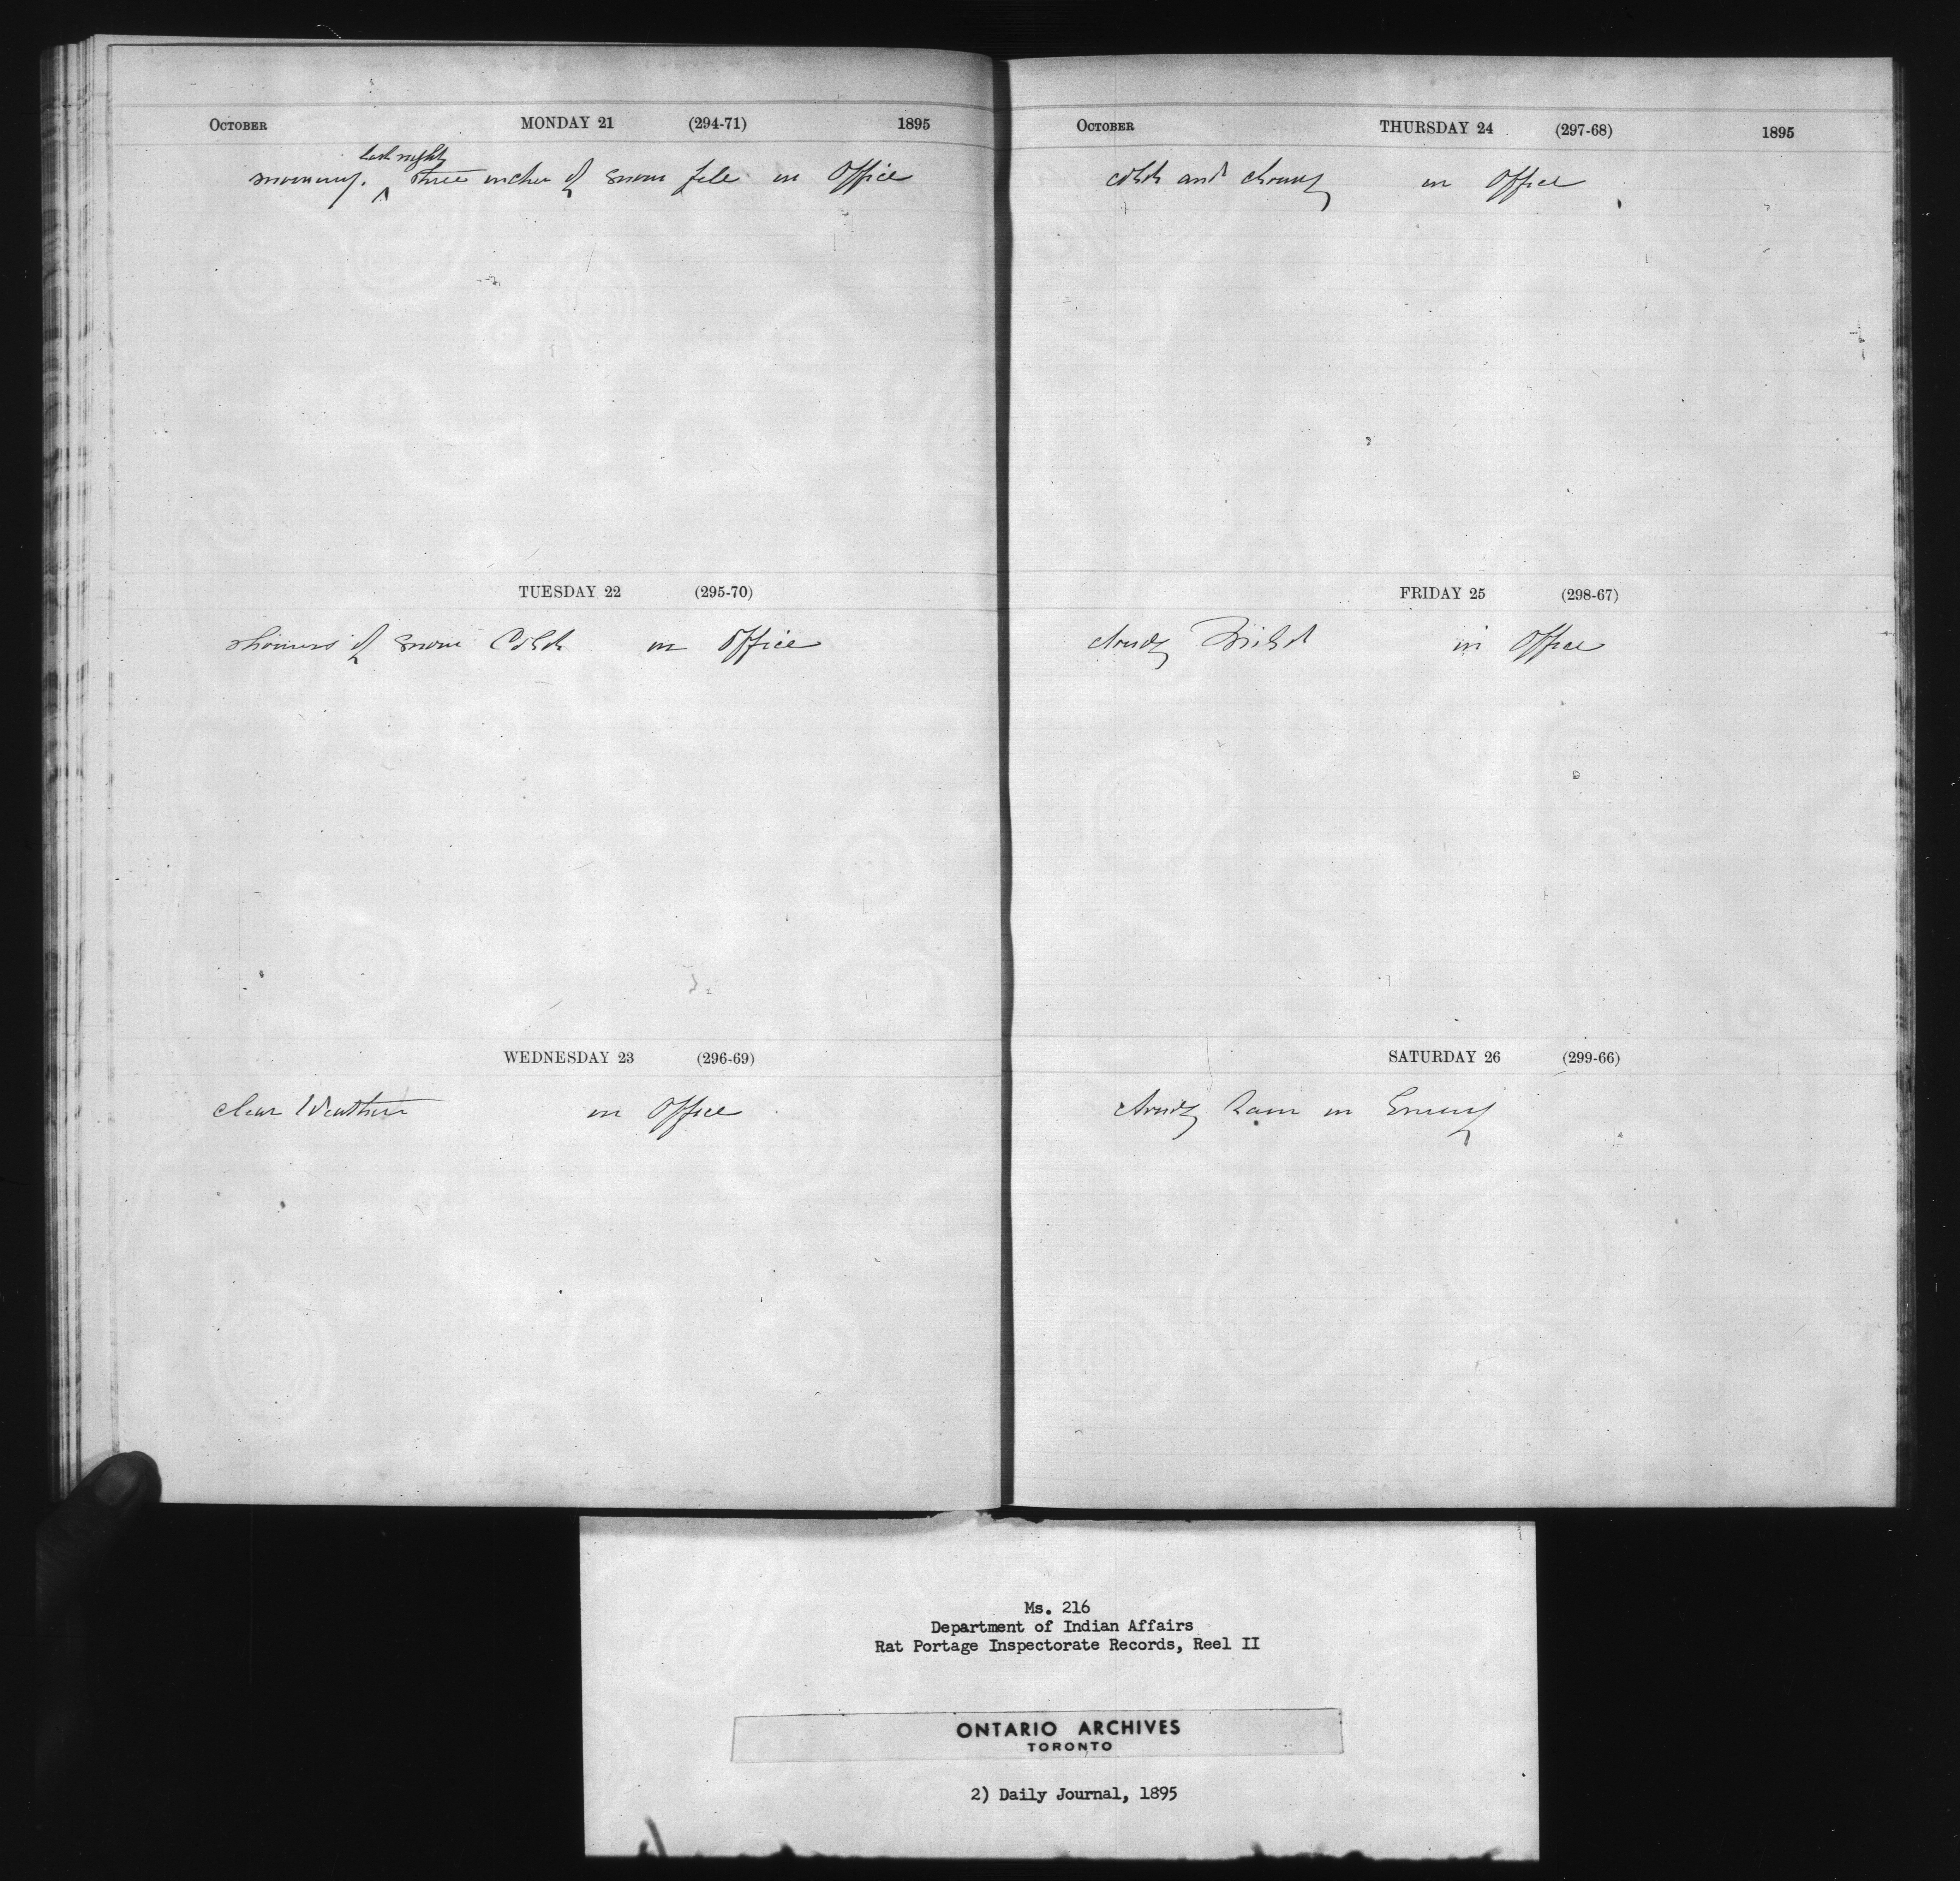 October MONDAY 21 (294-71) 1895
last night
snowing. ^ three inches of snow fell in Office
TUESDAY 22 (295-70)
showers of snow Cold in Office
WEDNESDAY 23 (296-69)
clear Weather in Office
October THURSDAY 24 (297-68) 1895
cold and cloudy in Office
FRIDAY 25 (298-67)
cloudy Mild in Office
SATURDAY 26 (299-66)
cloudy Rain in
Ms. 216
Department of Indian Affairs
Rat Portage Inspectorate Records, Reel II
ONTARIO ARCHIVES
TORONTO
2) Daily Journal, 1895